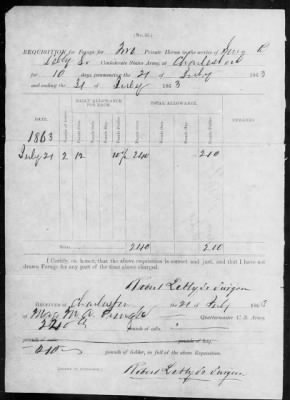 (No. 33.)
REQUISITION for Forage for Two Private Horses in the service of Surg R
Lebby Sr Confederate States Army, at Charleston
for 10 days commencing the 21 of July 1863
and ending the 31 of July 1863
DAILY ALLOWANCE FOR EACH. TOTAL ALLOWANCE.
DATE. REMARKS
1863
July 21 2 12 240 210
Total 240 210
I Certify, on honor, that the above requisition is correct and just, and that I have not
drawn Forage for any part of the time above charged.
Robert Lebby Sr Surgeon
RECEIVED at Charleston the 21 of July 1863
of Maj M. A. Pringle Quartermaster C. S. Army,
240 pounds of oats,
210 pounds of fodder, in full of the above Requisition.
Robert Lebby Sr Surgeon